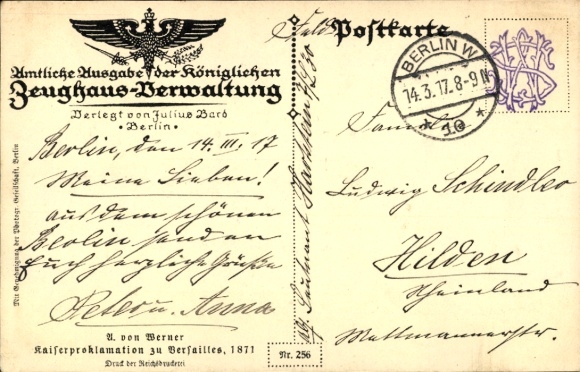 Amtliche Ausgabe der Königlichen
Zeughaus-Verwaltung
Verlegt von Julius Bard
• Berlin •
Berlin, den 14. III. 17
Meine Lieben!
aus dem schönen
Berlin senden
Euch herzliche Grüße
Peter u. Anna
A. von Werner
Kaiserproklamation zu Versailles, 1871
Druck der Reichsdruckerei
Nr. 256
Mit Genehmigung der Photogr. Gesellschaft, Berlin
Leutnant
Feldpostkarte
BERLIN W
14.3.17.8-9N
Familie
Ludwig Schindler
Hilden
Rheinland
Mettmannerstr.